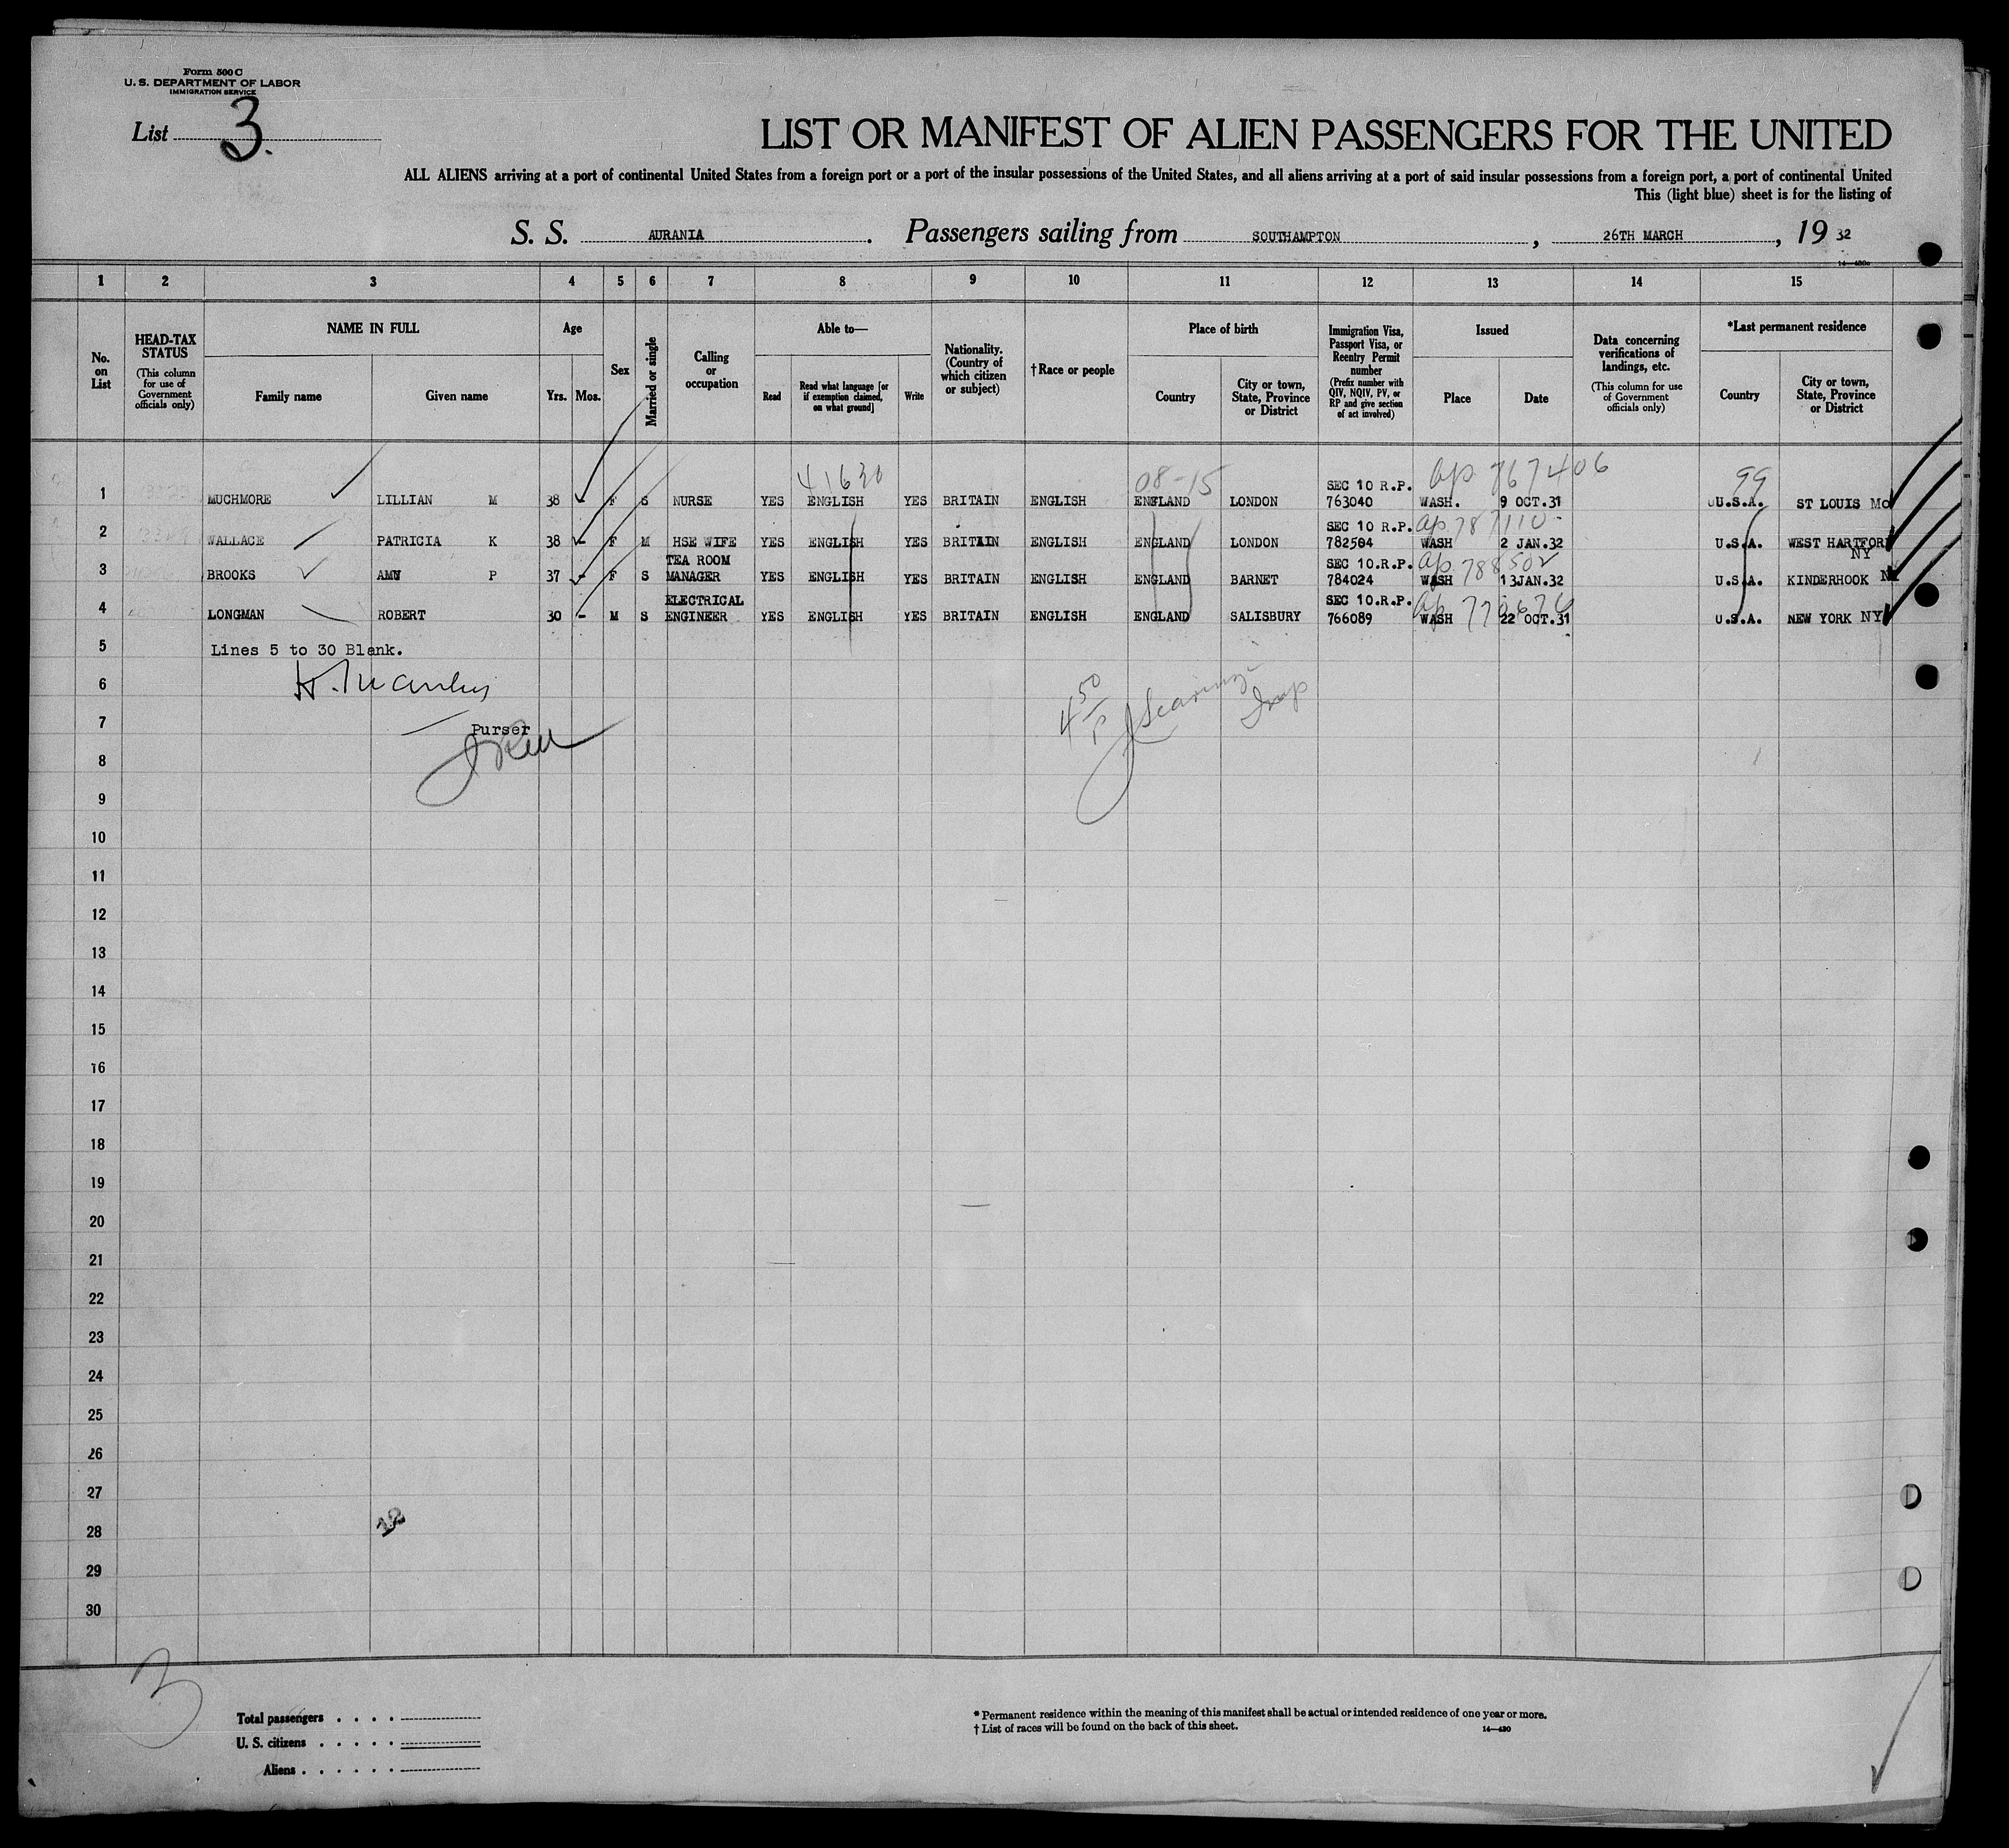 Form 500 C
U. S. DEPARTMENT OF LABOR
IMMIGRATION SERVICE
List 3.
LIST OR MANIFEST OF ALIEN PASSENGERS FOR THE UNITED
ALL ALIENS arriving at a port of continental United States from a foreign port or a port of the insular possessions of the United States, and all aliens arriving at a port of said insular possessions from a foreign port, a port of continental United
This (light blue) sheet is for the listing of
S. S. AURANIA. Passengers sailing from SOUTHAMPTON, 26TH MARCH, 19 32
1 2 3 4 5 6 7 8 9 10 11 12 13 14 15
No. on List
HEAD-TAX STATUS (This column for use of Government officials only)
NAME IN FULL
Family name
Given name
Age
Yrs. Mos.
Sex
Married or single
Calling or occupation
Able to—
Read
Read what language [or if exemption claimed, on what ground]
Write
Nationality. (Country of which citizen or subject)
† Race or people
Place of birth
Country
City or town, State, Province or District
Immigration Visa, Passport Visa, or Reentry Permit number (Prefix number with QIV, NQIV, PV, or RP and give section of act involved)
Issued
Place
Date
Data concerning verifications of landings, etc. (This column for use of Government officials only)
*Last permanent residence
Country
City or town, State, Province or District
41630 08-15 SEC 10 R.P. ap 767406 99
1 MUCHMORE LILLIAN M 38 - F S NURSE YES ENGLISH YES BRITAIN ENGLISH ENGLAND LONDON 763040 WASH. 9 OCT.31 U.S.A. ST LOUIS Mo
SEC 10 R.P. ap 787110
2 WALLACE PATRICIA K 38 - F M HSE WIFE YES ENGLISH YES BRITAIN ENGLISH ENGLAND LONDON 782504 WASH 2 JAN.32 U.S.A. WEST HARTFORD
TEA ROOM SEC 10.R.P. ap 788502 NY
3 BROOKS AMY P 37 - F S MANAGER YES ENGLISH YES BRITAIN ENGLISH ENGLAND BARNET 784024 WASH 13JAN.32 U.S.A. KINDERHOOK
ELECTRICAL SEC 10.R.P. ap
4 LONGMAN ROBERT 30 - M S ENGINEER YES ENGLISH YES BRITAIN ENGLISH ENGLAND SALISBURY 766089 WASH 22 OCT.31 U.S.A. NEW YORK NY
5 Lines 5 to 30 Blank.
6
7 Purser
8
9
10
11
12
13
14
15
16
17
18
19
20
21
22
23
24
25
26
27
28
29
30
3
Total passengers . . . .
U. S. citizens . . . . .
Aliens . . . . . .
* Permanent residence within the meaning of this manifest shall be actual or intended residence of one year or more.
† List of races will be found on the back of this sheet.
14—430